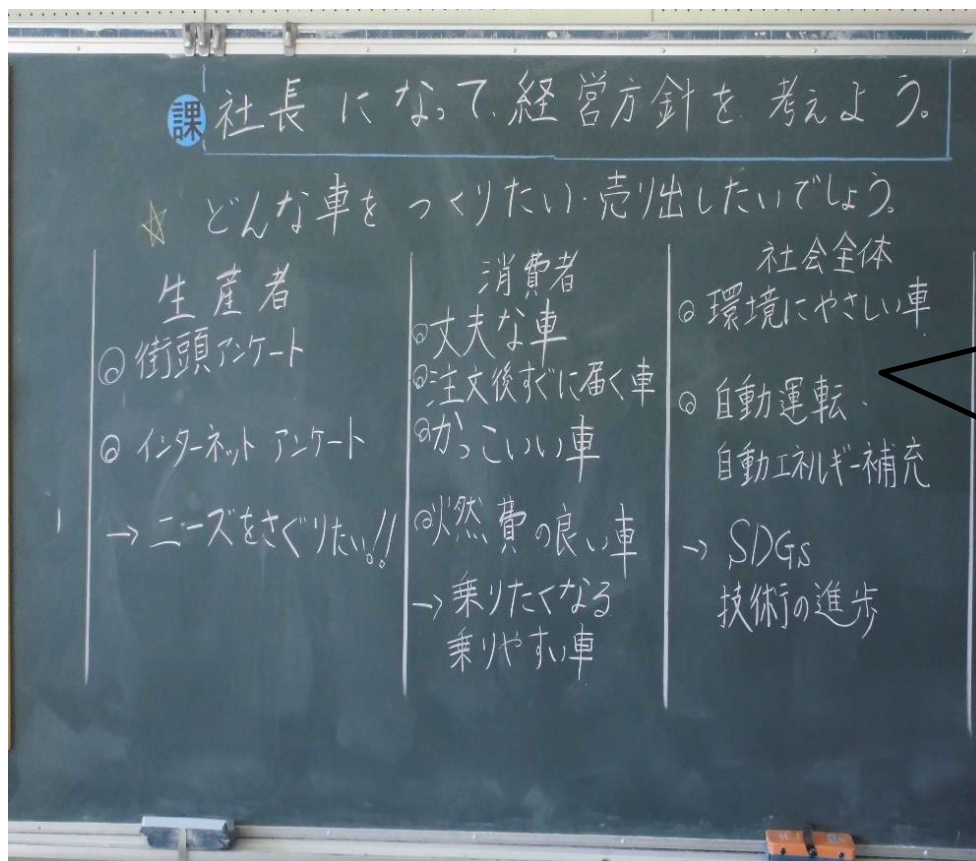 課 社長になって、経営方針を考えよう。
☆ どんな車をつくりたい・売り出したいでしょう。
生産者
◎街頭アンケート
◎インターネットアンケート
→ニーズをさぐりたい!!
消費者
◎丈夫な車
◎注文後すぐに届く車
◎かっこいい車
◎燃費の良い車
→乗りたくなる
乗りやすい車
社会全体
◎環境にやさしい車
◎自動運転・
自動エネルギー補充
→SDGs
技術の進歩